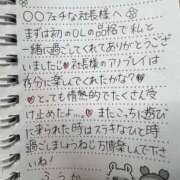 ○○フェチな社長様へ
まずは初のOLの品格で私と
一緒に過ごしてくれてありがとうござ
いました♡社長様のアソプレイは
存分に楽しんでくれたかな？
♡とても情熱的でたくさん受
け止めたよ…♡またこっちに遊び
に来られた時はステキなひと時
過ごしましょうねし万博楽しんで下さ
いね！